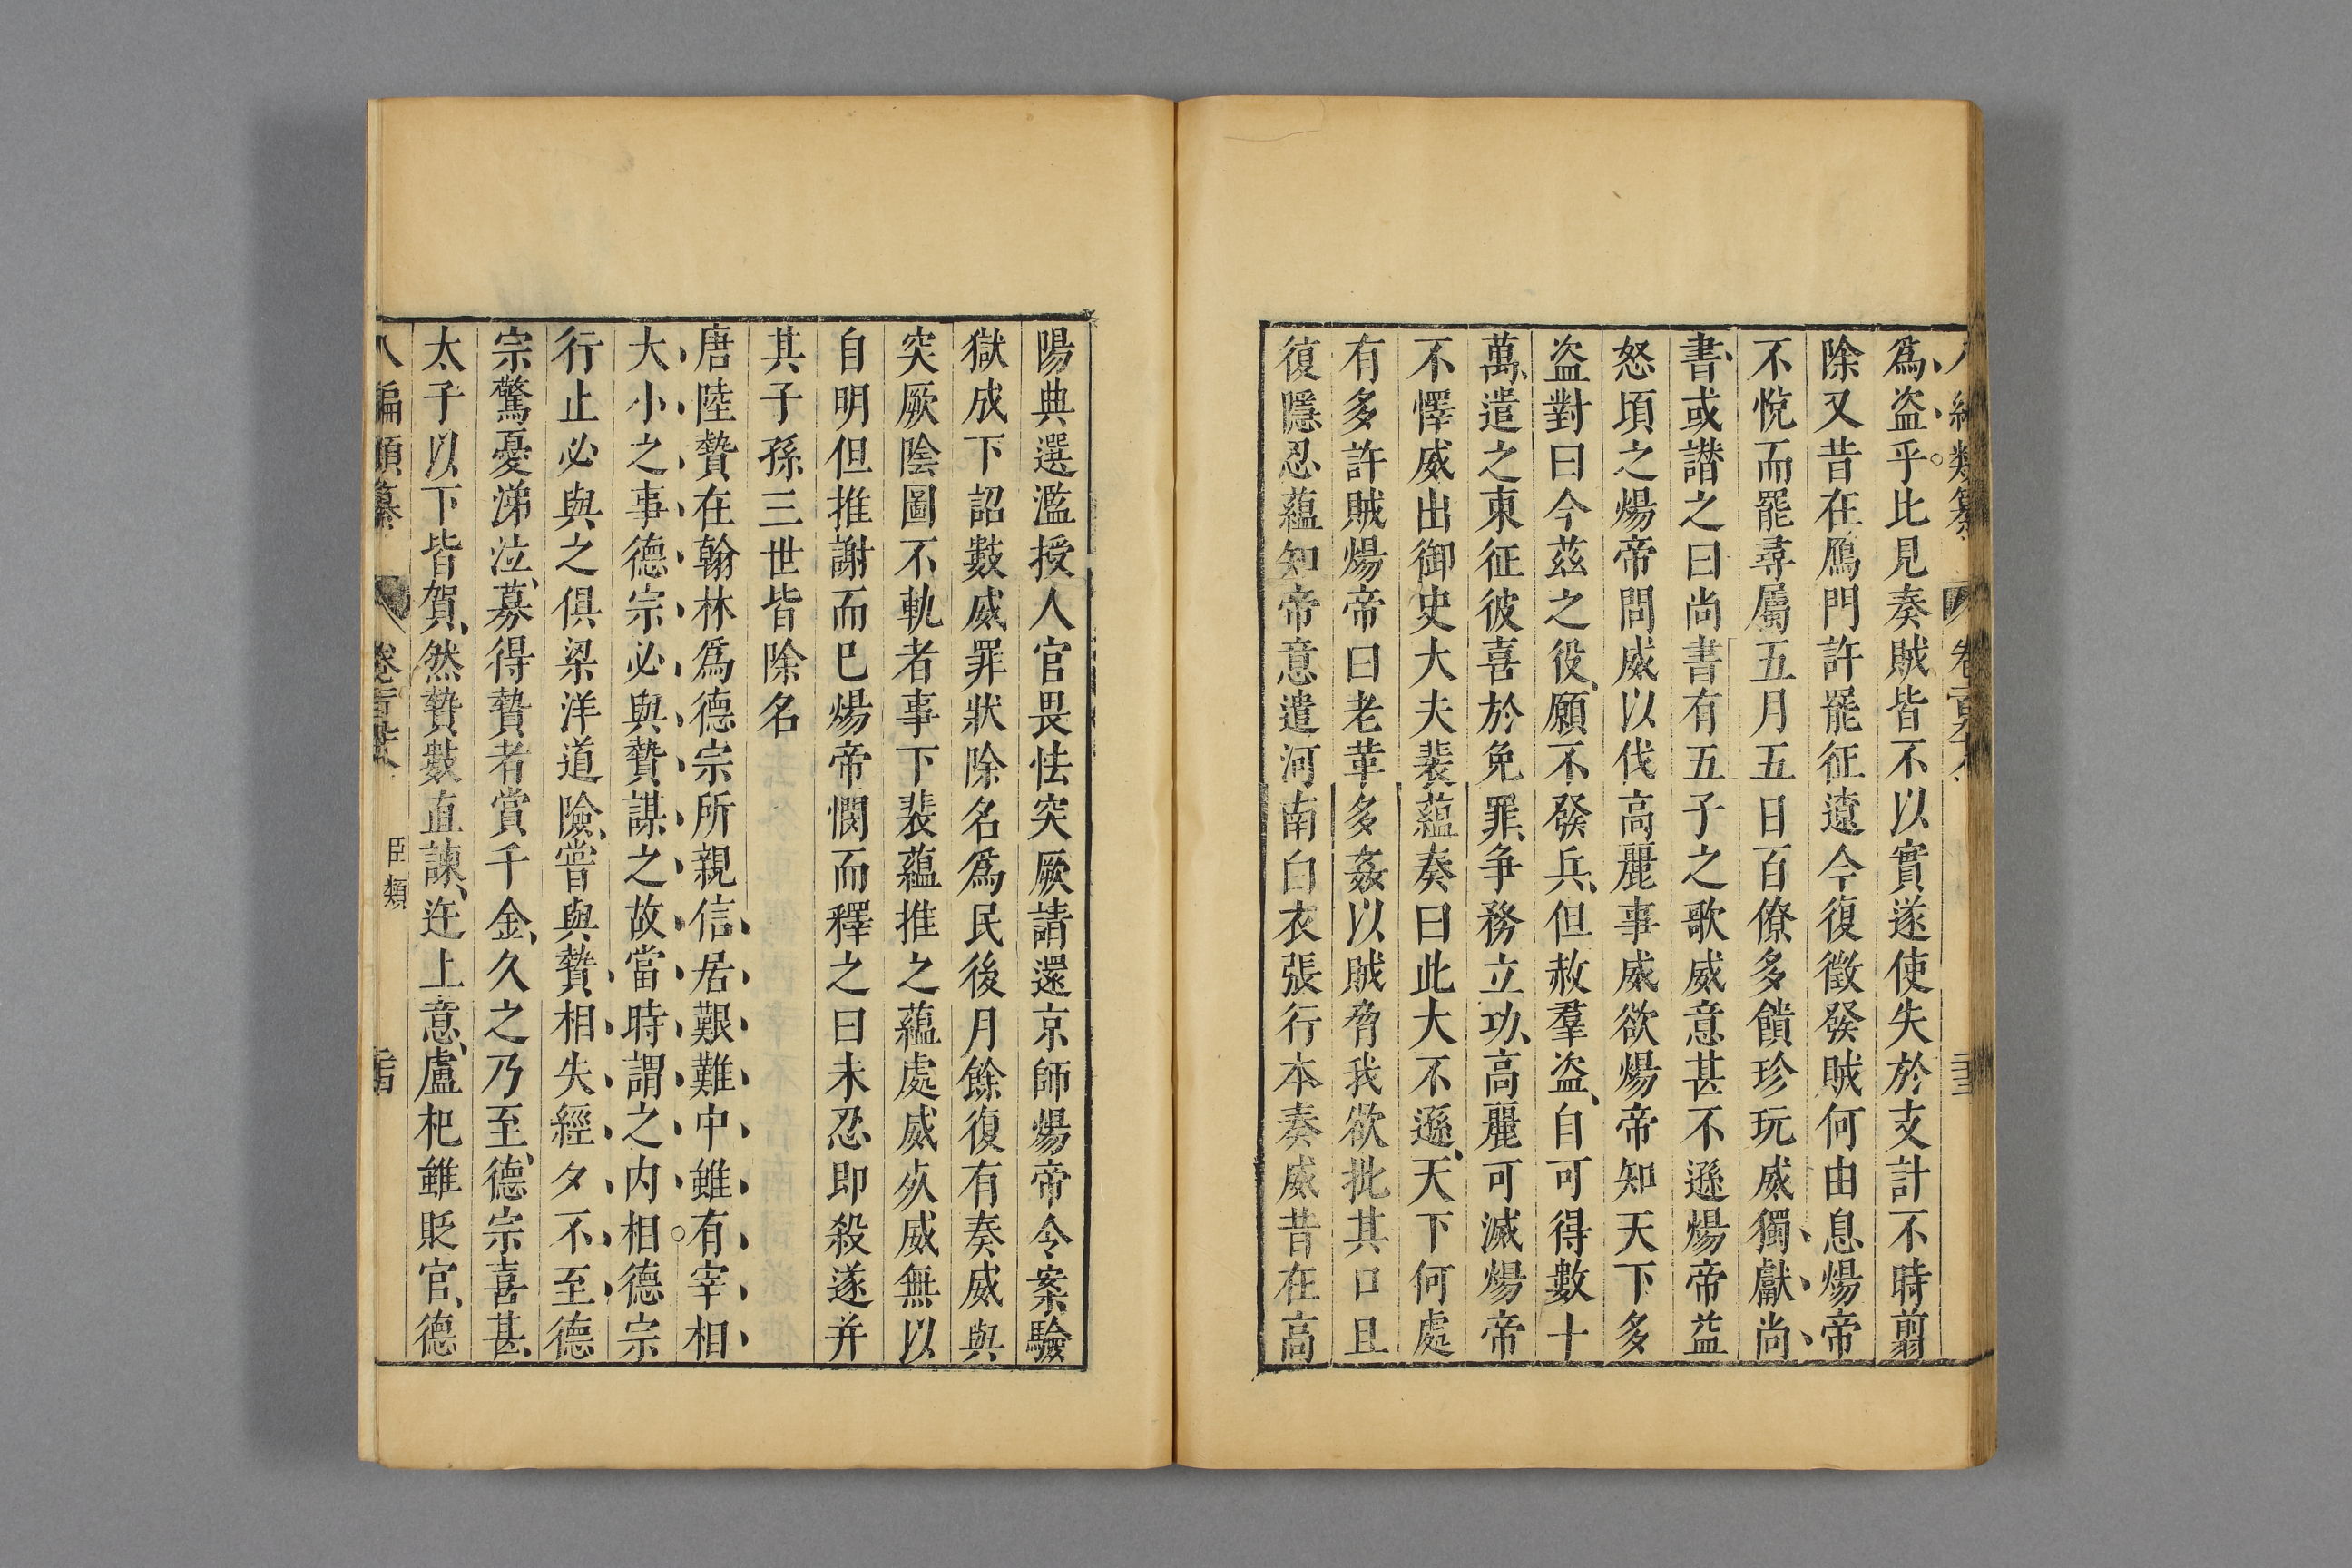 爲盗乎比見奏賊皆不以實遂使失於支計不時翦
除又昔在鴈門許罷征遼今復徵發賊何由息煬帝
不悅而罷尋屬五月五日百僚多饋珍玩威獨獻尚
書或譖之曰尚書有五子之歌威意甚不遜煬帝益
怒頃之煬帝問威以伐高麗事威欲煬帝知天下多
盗對曰今茲之役願不發兵但赦羣盗自可得數十
萬遣之東征彼喜於免罪争務立功高麗可滅煬帝
不懌威出御史大夫裴蘊奏曰此大不遜天下何處
有多許賊煬帝曰老革多姦以賊脅我欲批其口且
復隱忍蘊知帝意遣河南白衣張行本奏威昔在高
陽典選濫授人官畏怯突厥請還京師煬帝令案驗
獄成下詔數威罪狀除名爲民後月餘復有奏威與
突厥陰圖不軌者事下裴蘊推之蘊處威死威無以
自明但推謝而已煬帝憫而釋之曰未忍即殺遂并
其子孫三世皆除名
唐陸贄在翰林爲德宗所親信居艱難中雖有宰相
大小之事德宗必與贄謀之故當時謂之内相德宗
行止必與之俱梁洋道險嘗與贄相失經夕不至德
宗驚憂涕泣募得贄者賞千金久之乃至德宗喜甚
太子以下皆賀然贄數直諫迕上意盧杞雖貶官德
八編類纂 卷百 臣類